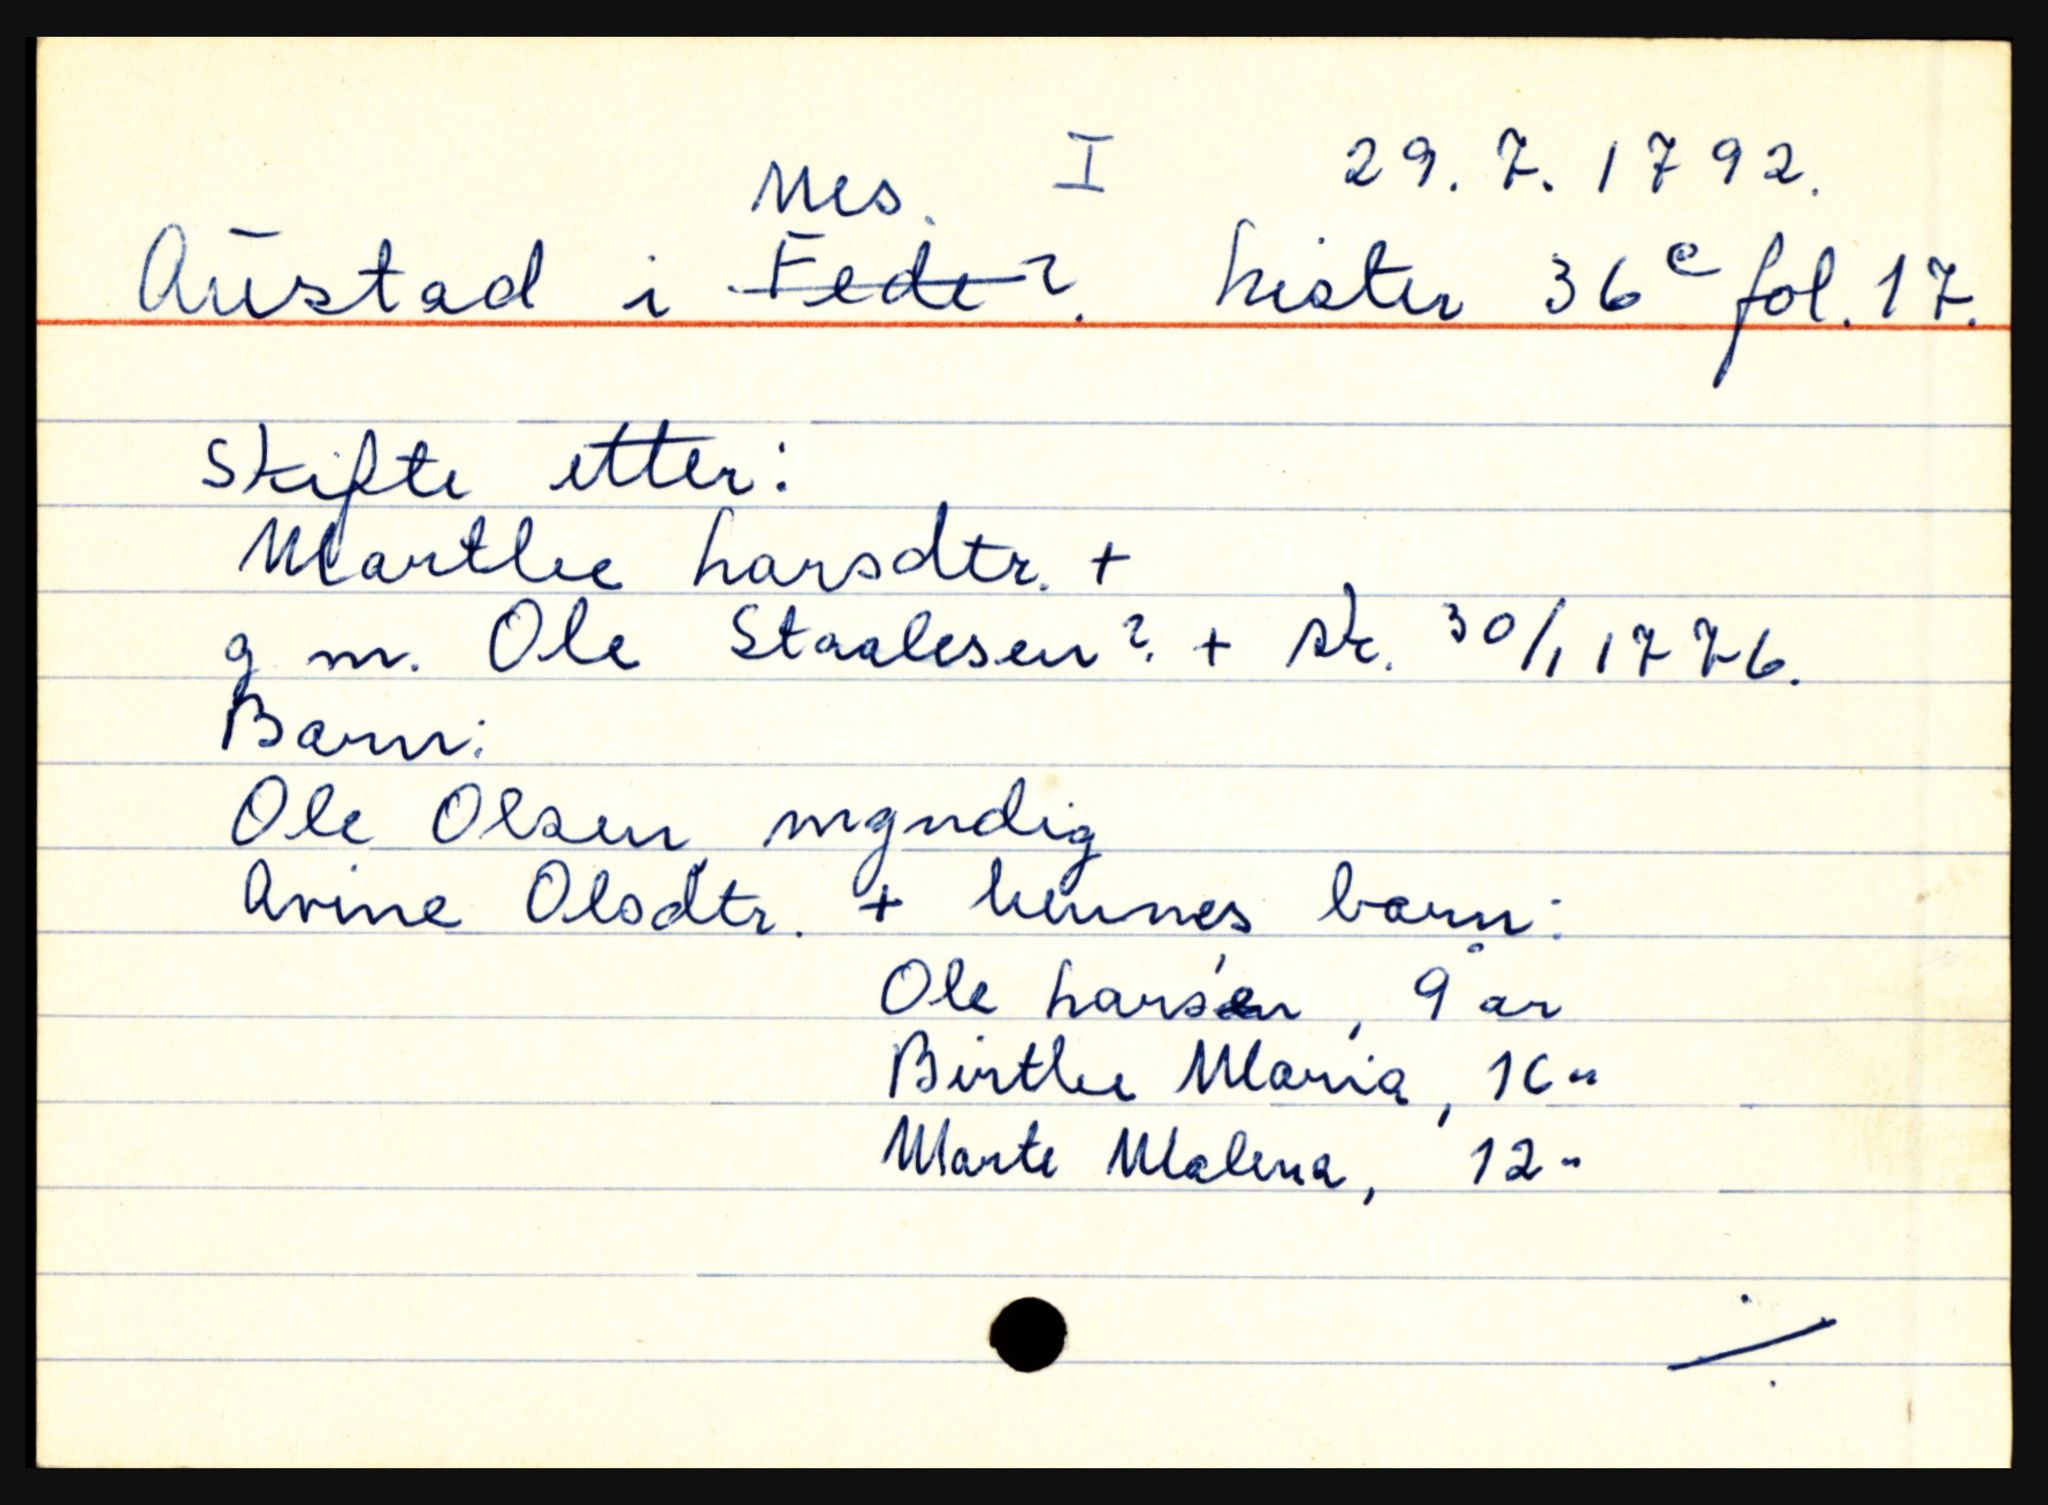 Nes. I 29.7.1792.
Austad i Fede? Lister 36c fol. 17.
Skifte etter:
Marthe Larsdtr. +
g m. Ole Staalesen? + sk. 30/1 1776.
Barn:
Ole Olsen myndig
Avine Olsdtr. + hennes barn:
Ole Larsen, 9 år
Birthe Maria, 16 "
Marte Malena, 12 "